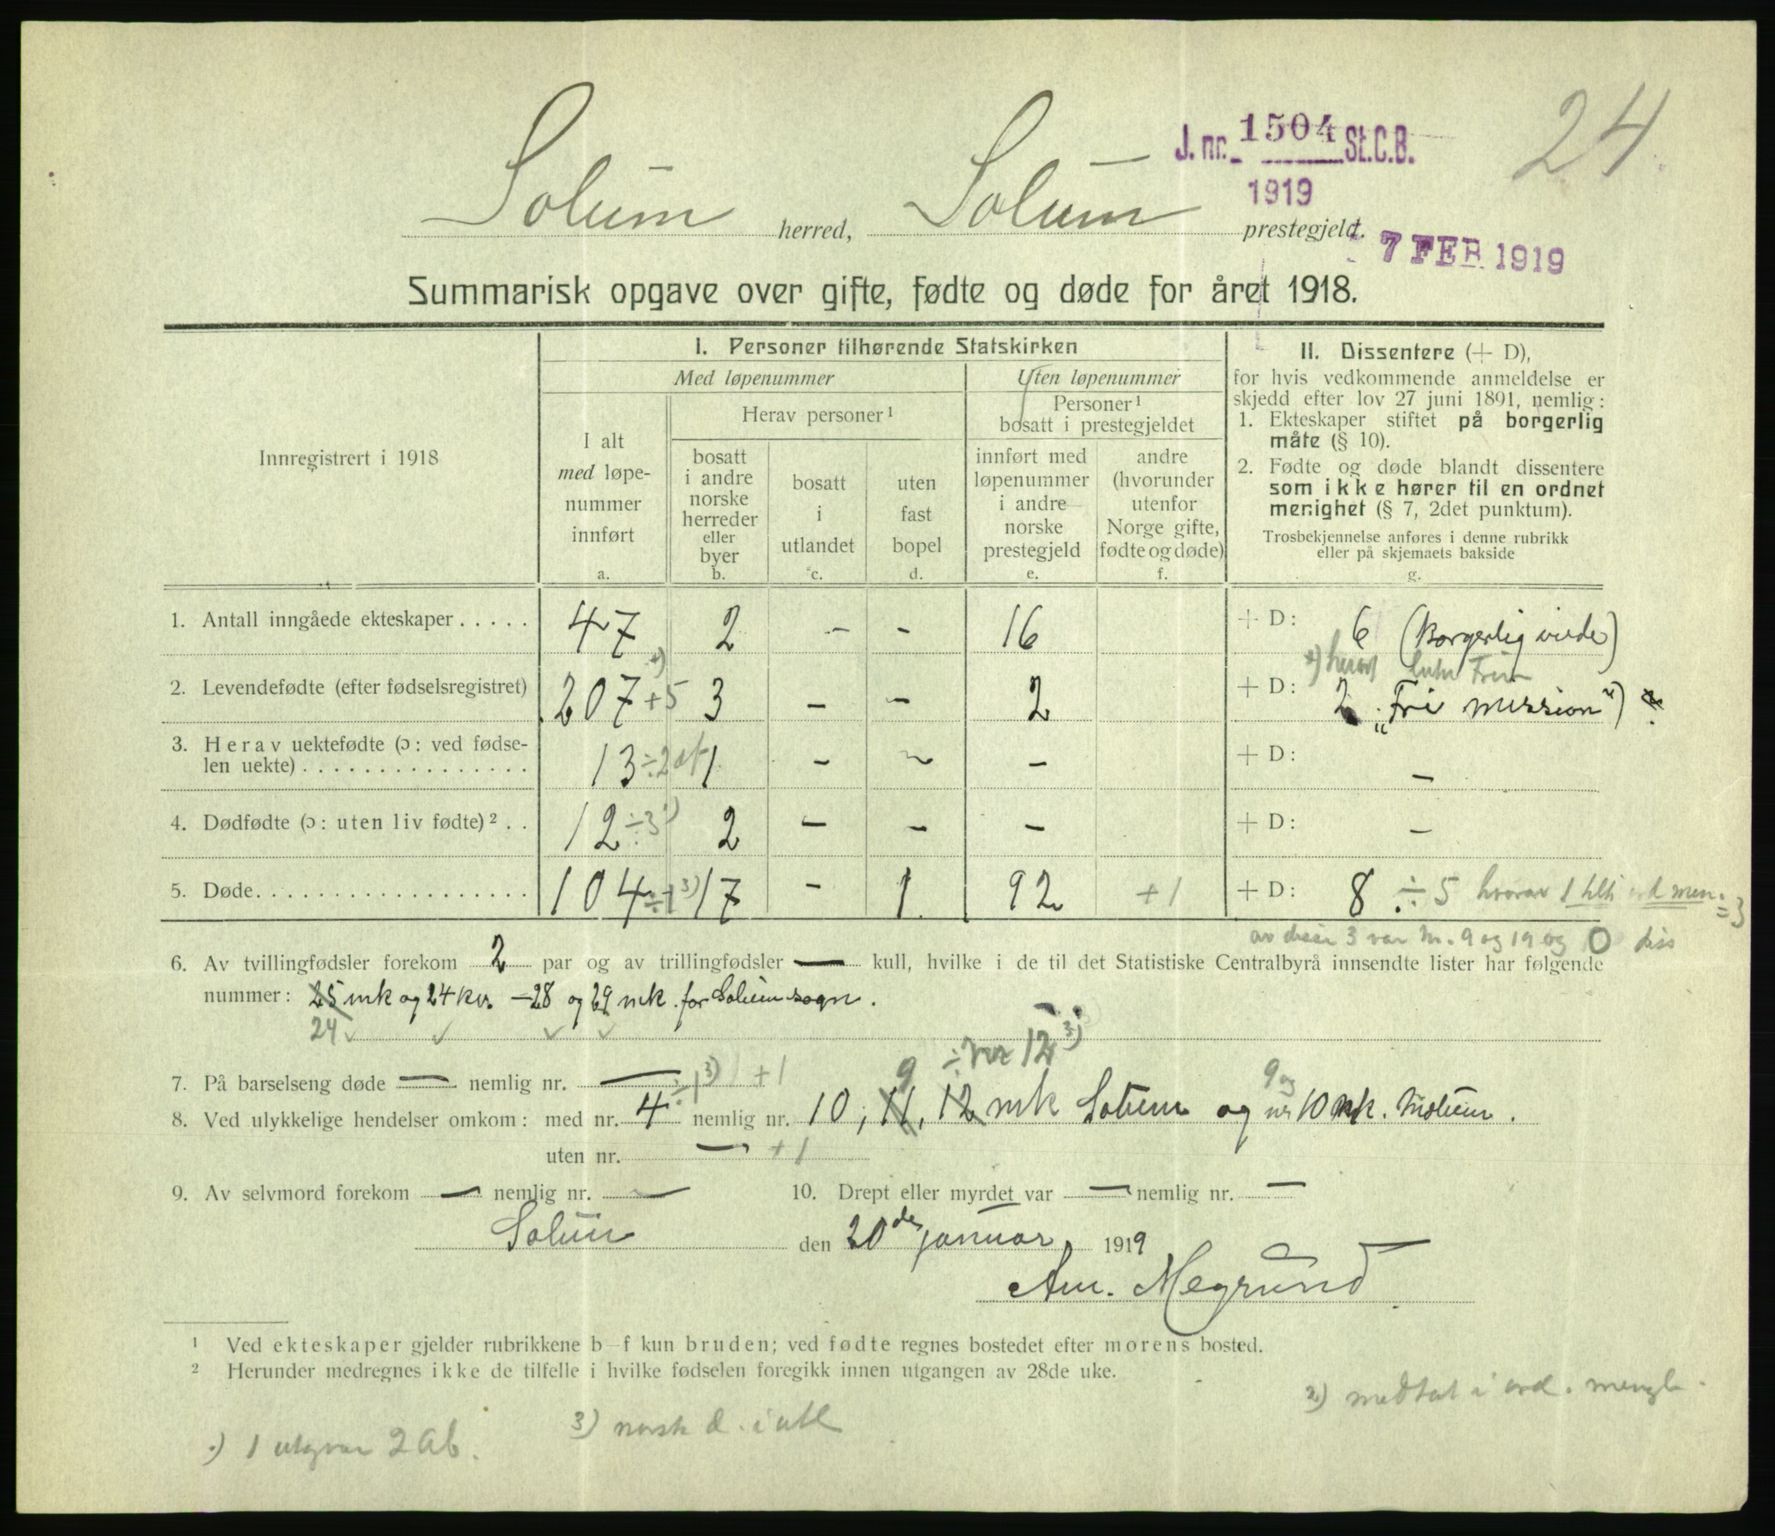 24
J. nr. 1504 St.C.B.
1919
Solum herred, Solum prestegjeld.
7 FEB 1919
Summarisk opgave over gifte, fødte og døde for året 1918.
Innregistrert i 1918
I. Personer tilhørende Statskirken
Med løpenummer
Uten løpenummer
I alt
med løpe-
nummer
innført
a.
Herav personer ¹
bosatt
i andre
norske
herreder
eller
byer
b.
bosatt
i
utlandet
c.
uten
fast
bopel
d.
Personer ¹
bosatt i prestegjeldet
innført med
løpenummer
i andre
norske
prestegjeld
e.
andre
(hvorunder
utenfor
Norge gifte,
fødte og døde)
f.
II. Dissentere (+ D),
for hvis vedkommende anmeldelse er
skjedd efter lov 27 juni 1891, nemlig:
1. Ekteskaper stiftet på borgerlig
måte (§ 10).
2. Fødte og døde blandt dissentere
som ikke hører til en ordnet
menighet (§ 7, 2det punktum).
Trosbekjennelse anføres i denne rubrikk
eller på skjemaets bakside
g.
1. Antall inngåede ekteskaper ..... 47 2 – – 16 + D: 6 (Borgerlig viede)
2. Levendefødte (efter fødselsregistret) 207 +5 3 – – 2 + D: 2 „Fri mission")
3. Herav uektefødte (ɔ: ved fødse-
len uekte) ............... 13 ÷2 1 – ~ – + D: –
4. Dødfødte (ɔ: uten liv fødte) ² .. 12 ÷3 2 – – – + D: –
5. Døde .................. 104 ÷1 ³) 17 – 1 92 +1 + D: 8 ÷5 hvorav 1 = 3
av disse 3 var nr. 9 og 19 og 0 diss
6. Av tvillingfødsler forekom 2 par og av trillingfødsler — kull, hvilke i de til det Statistiske Centralbyrå innsendte lister har følgende
nummer: 25 mk og 24 kv. – 28 og 29 mk. for Solum sogn.
24
÷ nr 12 ³)
7. På barselseng døde — nemlig nr. — +1
8. Ved ulykkelige hendelser omkom: med nr. 4 ÷1 ³) nemlig nr. 10, 11, 9 12 mk Solum og 9 og nr 10 mk. Mælum.
uten nr. — +1
9. Av selvmord forekom — nemlig nr. — 10. Drept eller myrdet var — nemlig nr. —
Solum den 20de januar 1919
Am. Megrund
¹ Ved ekteskaper gjelder rubrikkene b–f kun bruden; ved fødte regnes bostedet efter morens bosted.
² Herunder medregnes ikke de tilfelle i hvilke fødselen foregikk innen utgangen av 28de uke.
2) medtat i ord. mengh.
3) norsk d. i utl
1) 1 utgvar 2 Ab.